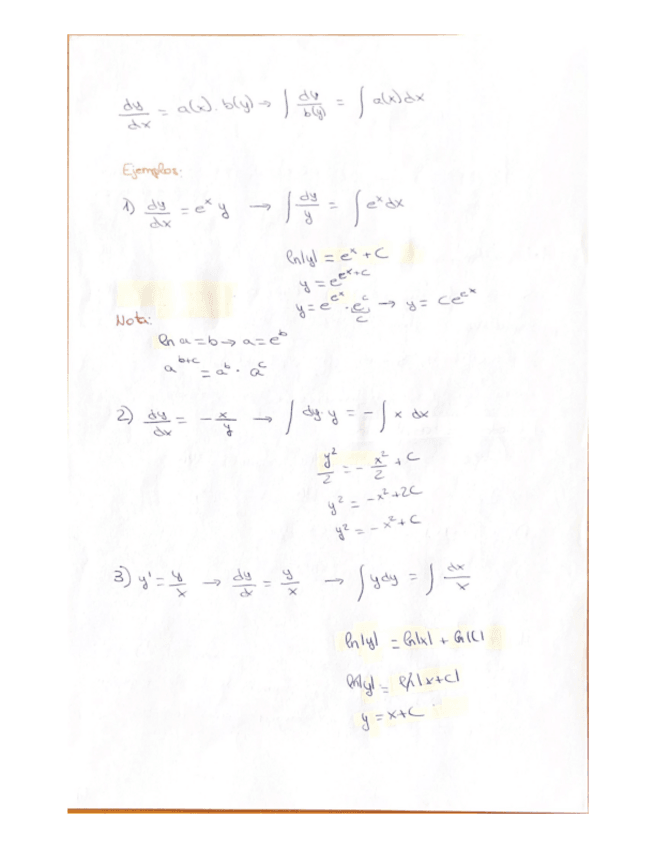 dy/dx = a(x) · b(y) → ∫ dy/b(y) = ∫ a(x) dx
Ejemplos:
1) dy/dx = eˣ y → ∫ dy/y = ∫ eˣ dx
ln|y| = eˣ + C
y = e^(eˣ+C)
y = e^(eˣ) · e^c → y = C e^(eˣ)
C
Nota:
ln a = b → a = e^b
a^(b+c) = a^b · a^c
2) dy/dx = -x/y → ∫ dy · y = - ∫ x dx
y²/2 = - x²/2 + C
y² = -x² + 2C
y² = -x² + C
3) y' = y/x → dy/dx = y/x → ∫ y dy = ∫ dx/x
ln|y| = ln|x| + ln|C|
ln|y| = ln|x+C|
y = x+C